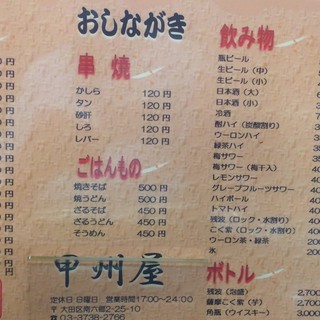 おしながき
串焼
かしら 120円
タン 120円
砂肝 120円
しろ 120円
レバー 120円
ごはんもの
焼きそば 500円
焼うどん 500円
ざるそば 450円
ざるうどん 450円
そうめん 450円
甲州屋
定休日 日曜日 営業時間17:00〜24:00
〒 大田区南六郷2-25-10
☎ 03-3738-2766
飲み物
瓶ビール
生ビール(中)
生ビール(小)
日本酒(大)
日本酒(小)
冷酒
酎ハイ(炭酸割り)
ウーロンハイ
緑茶ハイ
梅サワー
梅サワー(梅干入)
レモンサワー
グレープフルーツサワー
ハイボール
トマトハイ
残波(ロック・水割り)
こく紫(ロック・水割り)
ウーロン茶・緑茶
氷
ボトル
残波(泡盛) 2,700
薩摩こく紫(芋) 2,700
角瓶(ウイスキー) 3,000